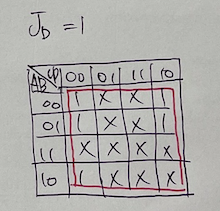 J_D = 1
AB CD 00 01 11 10
00 1 X X 1
01 1 X X 1
11 X X X X
10 1 X X X